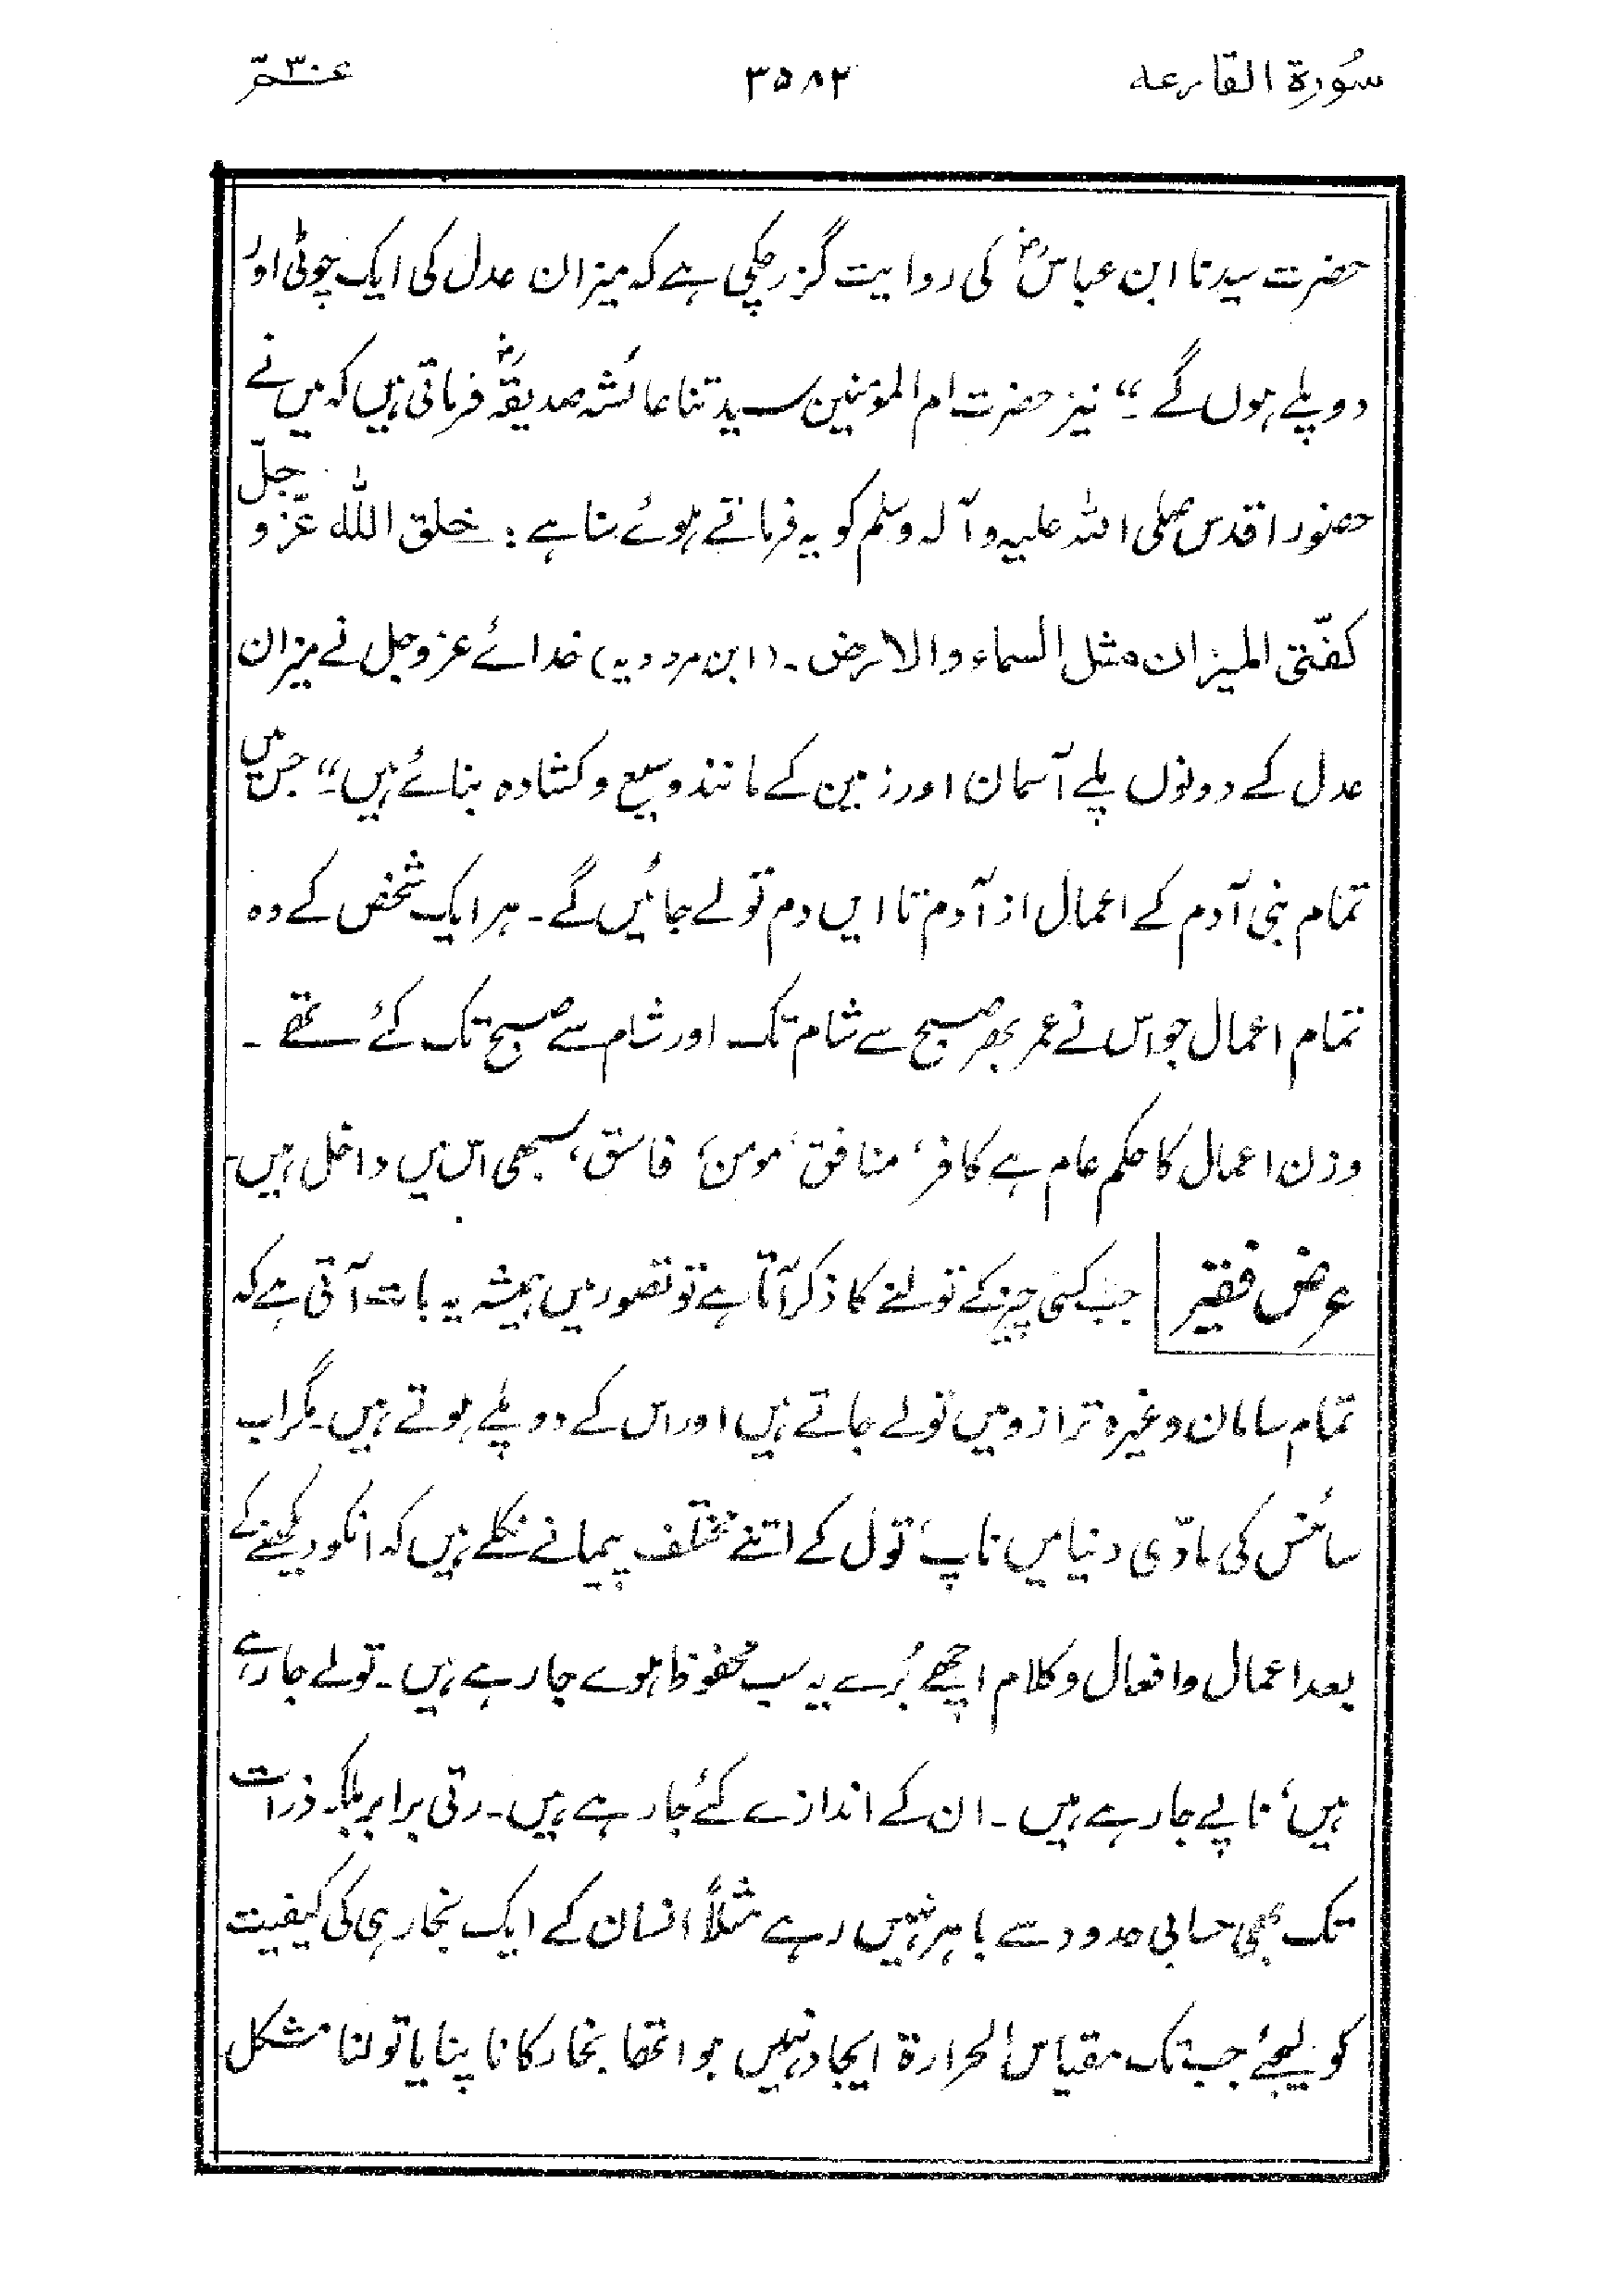 سُورۃ القارعہ ۳۵۸۲ عـمّ ۳۰
حضرت سیدنا ابن عباسؓ کی روایت گزر چکی ہے کہ میزان عدل کی ایک چوٹی اور
دو پلے ہوں گے۔“ نیز حضرت ام المؤمنین سیدتنا عائشہ صدیقہؓ فرماتی ہیں کہ میں نے
حضور اقدس صلی اللہ علیہ وآلہ وسلم کو یہ فرماتے ہوئے سنا ہے : خلق اللہ عزّ و جلّ
کفّتی المیزان مثل السماء والارض۔ (ابن مردویہ) خدائے عزوجل نے میزان
عدل کے دونوں پلے آسمان اور زمین کے مانند وسیع و کشادہ بنائے ہیں۔“ جس میں
تمام بنی آدم کے اعمال از آدم تا ایں دم تولے جائیں گے۔ ہر ایک شخص کے وہ
تمام اعمال جو اس نے عمر بھر صبح سے شام تک اور شام سے صبح تک کئے تھے۔
وزن اعمال کا حکم عام ہے کافر، منافق، مومن، فاسق، سبھی اس میں داخل ہیں۔
عرض فقیر جب کسی چیز کے تولنے کا ذکر آتا ہے تو تصور میں ہمیشہ یہ بات آتی ہے کہ
تمام سامان وغیرہ ترازو میں تولے جاتے ہیں اور اس کے دو پلے ہوتے ہیں۔ مگر اب
سائنس کی مادّی دنیا میں ناپ تول کے اتنے مختلف پیمانے نکلے ہیں کہ انکو دیکھنے کے
بعد اعمال و افعال و کلام اچھے بُرے یہ سب محفوظ ہوے جا رہے ہیں۔ تولے جا رہے
ہیں، ناپے جا رہے ہیں۔ ان کے اندازے کئے جا رہے ہیں۔ رتی برابر بلکہ ذرات
تک بھی حسابی حدود سے باہر نہیں رہے مثلاً انسان کے ایک بخار ہی کی کیفیت
کو لیجئے جب تک مقیاس الحرارۃ ایجاد نہیں ہوا تھا بخار کا ناپنا یا تولنا مشکل